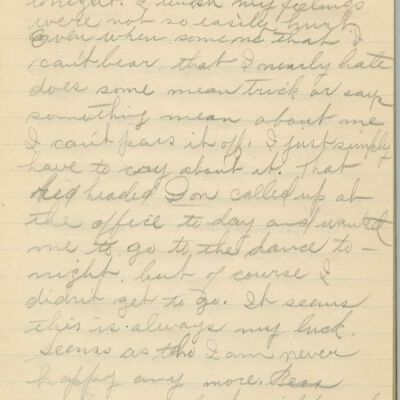 tonight. I wish my feelings
were not so easily hurt.
Even when someone that I
can't bear that I nearly hate
does some mean trick or says
something mean about me
I can't pass it off. I just simply
have to cry about it. That
Red headed Don called up at
the office to day and wanted
me to go to the dance to-
night. but of course I
didn't get to go. It seems
this is always my luck.
Seems as tho I am never
happy any more. Bess